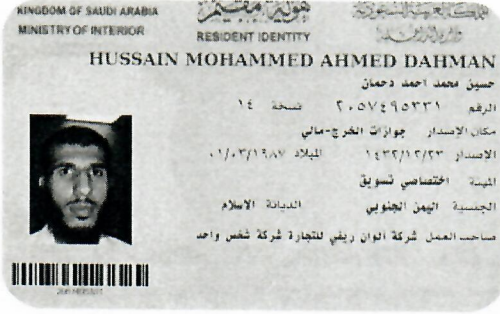 KINGDOM OF SAUDI ARABIA
MINISTRY OF INTERIOR
هوية مقيم
RESIDENT IDENTITY
المملكة العربية السعودية
وزارة الداخلية
HUSSAIN MOHAMMED AHMED DAHMAN
حسين محمد احمد دحمان
الرقم ٢٠٥٧٤٩٥٣٣١ نسخة ١٤
مكان الإصدار جوازات الخرج-مالي
الإصدار ١٤٣٢/١٢/٢٣ الميلاد ٠١/٠٣/١٩٨٧
المهنة اختصاصي تسويق
الجنسية اليمن الجنوبي الديانة الاسلام
صاحب العمل شركة الوان ريفي للتجارة شركة شخص واحد